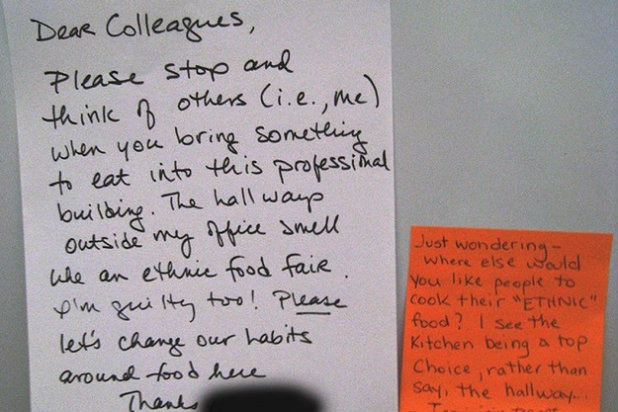 Dear Colleagues,
Please stop and
think of others (i.e., me)
when you bring something
to eat into this professional
building. The hallways
outside my office smell
like an ethnic food fair.
I'm guilty too! Please
let's change our habits
around food here
Thanks
Just wondering-
where else would
you like people to
cook their "ETHNIC"
food? I see the
Kitchen being a top
Choice, rather than
say, the hallway...